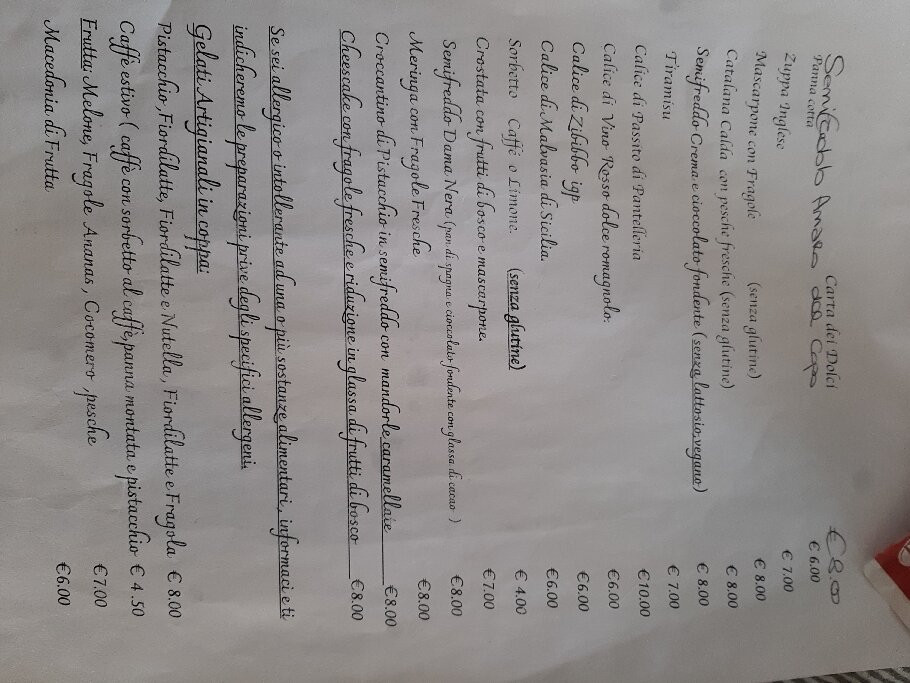 Carta dei Dolci
Semifreddo Amaro del Capo € 8.00
Panna cotta € 6.00
Zuppa Inglese € 7.00
Mascarpone con Fragole (senza glutine) € 8.00
Catalana Calda con pesche fresche (senza glutine) € 8.00
Semifreddo Crema e cioccolato fondente (senza lattosio, vegano) € 8.00
Tiramisu € 7.00
Calice di Passito di Pantelleria €10.00
Calice di Vino Rosso dolce romagnolo. € 6.00
Calice di Zibibbo igp € 6.00
Calice di Malvasia di Sicilia. € 6.00
Sorbetto Caffè o Limone. (senza glutine) € 4.00
Crostata con frutti di bosco e mascarpone. € 7.00
Semifreddo Dama Nera (pan di spagna e cioccolato fondente con glassa di cacao ) € 8.00
Meringa con Fragole Fresche €8.00
Croccantino di Pistacchio in semifreddo con mandorle caramellate €8.00
Cheesecake con fragole fresche e riduzione in glassa di frutti di bosco €8.00
Se sei allergico o intollerante ad una o più sostanze alimentari, informaci e ti
indicheremo le preparazioni prive degli specifici allergeni.
Gelati Artigianali in coppa:
Pistacchio, Fiordilatte, Fiordilatte e Nutella, Fiordilatte e Fragola € 8.00
Caffè estivo ( caffè con sorbetto al caffè, panna montata e pistacchio € 4.50
Frutta: Melone, Fragole Ananas , Cocomero , pesche €7.00
Macedonia di Frutta €6.00